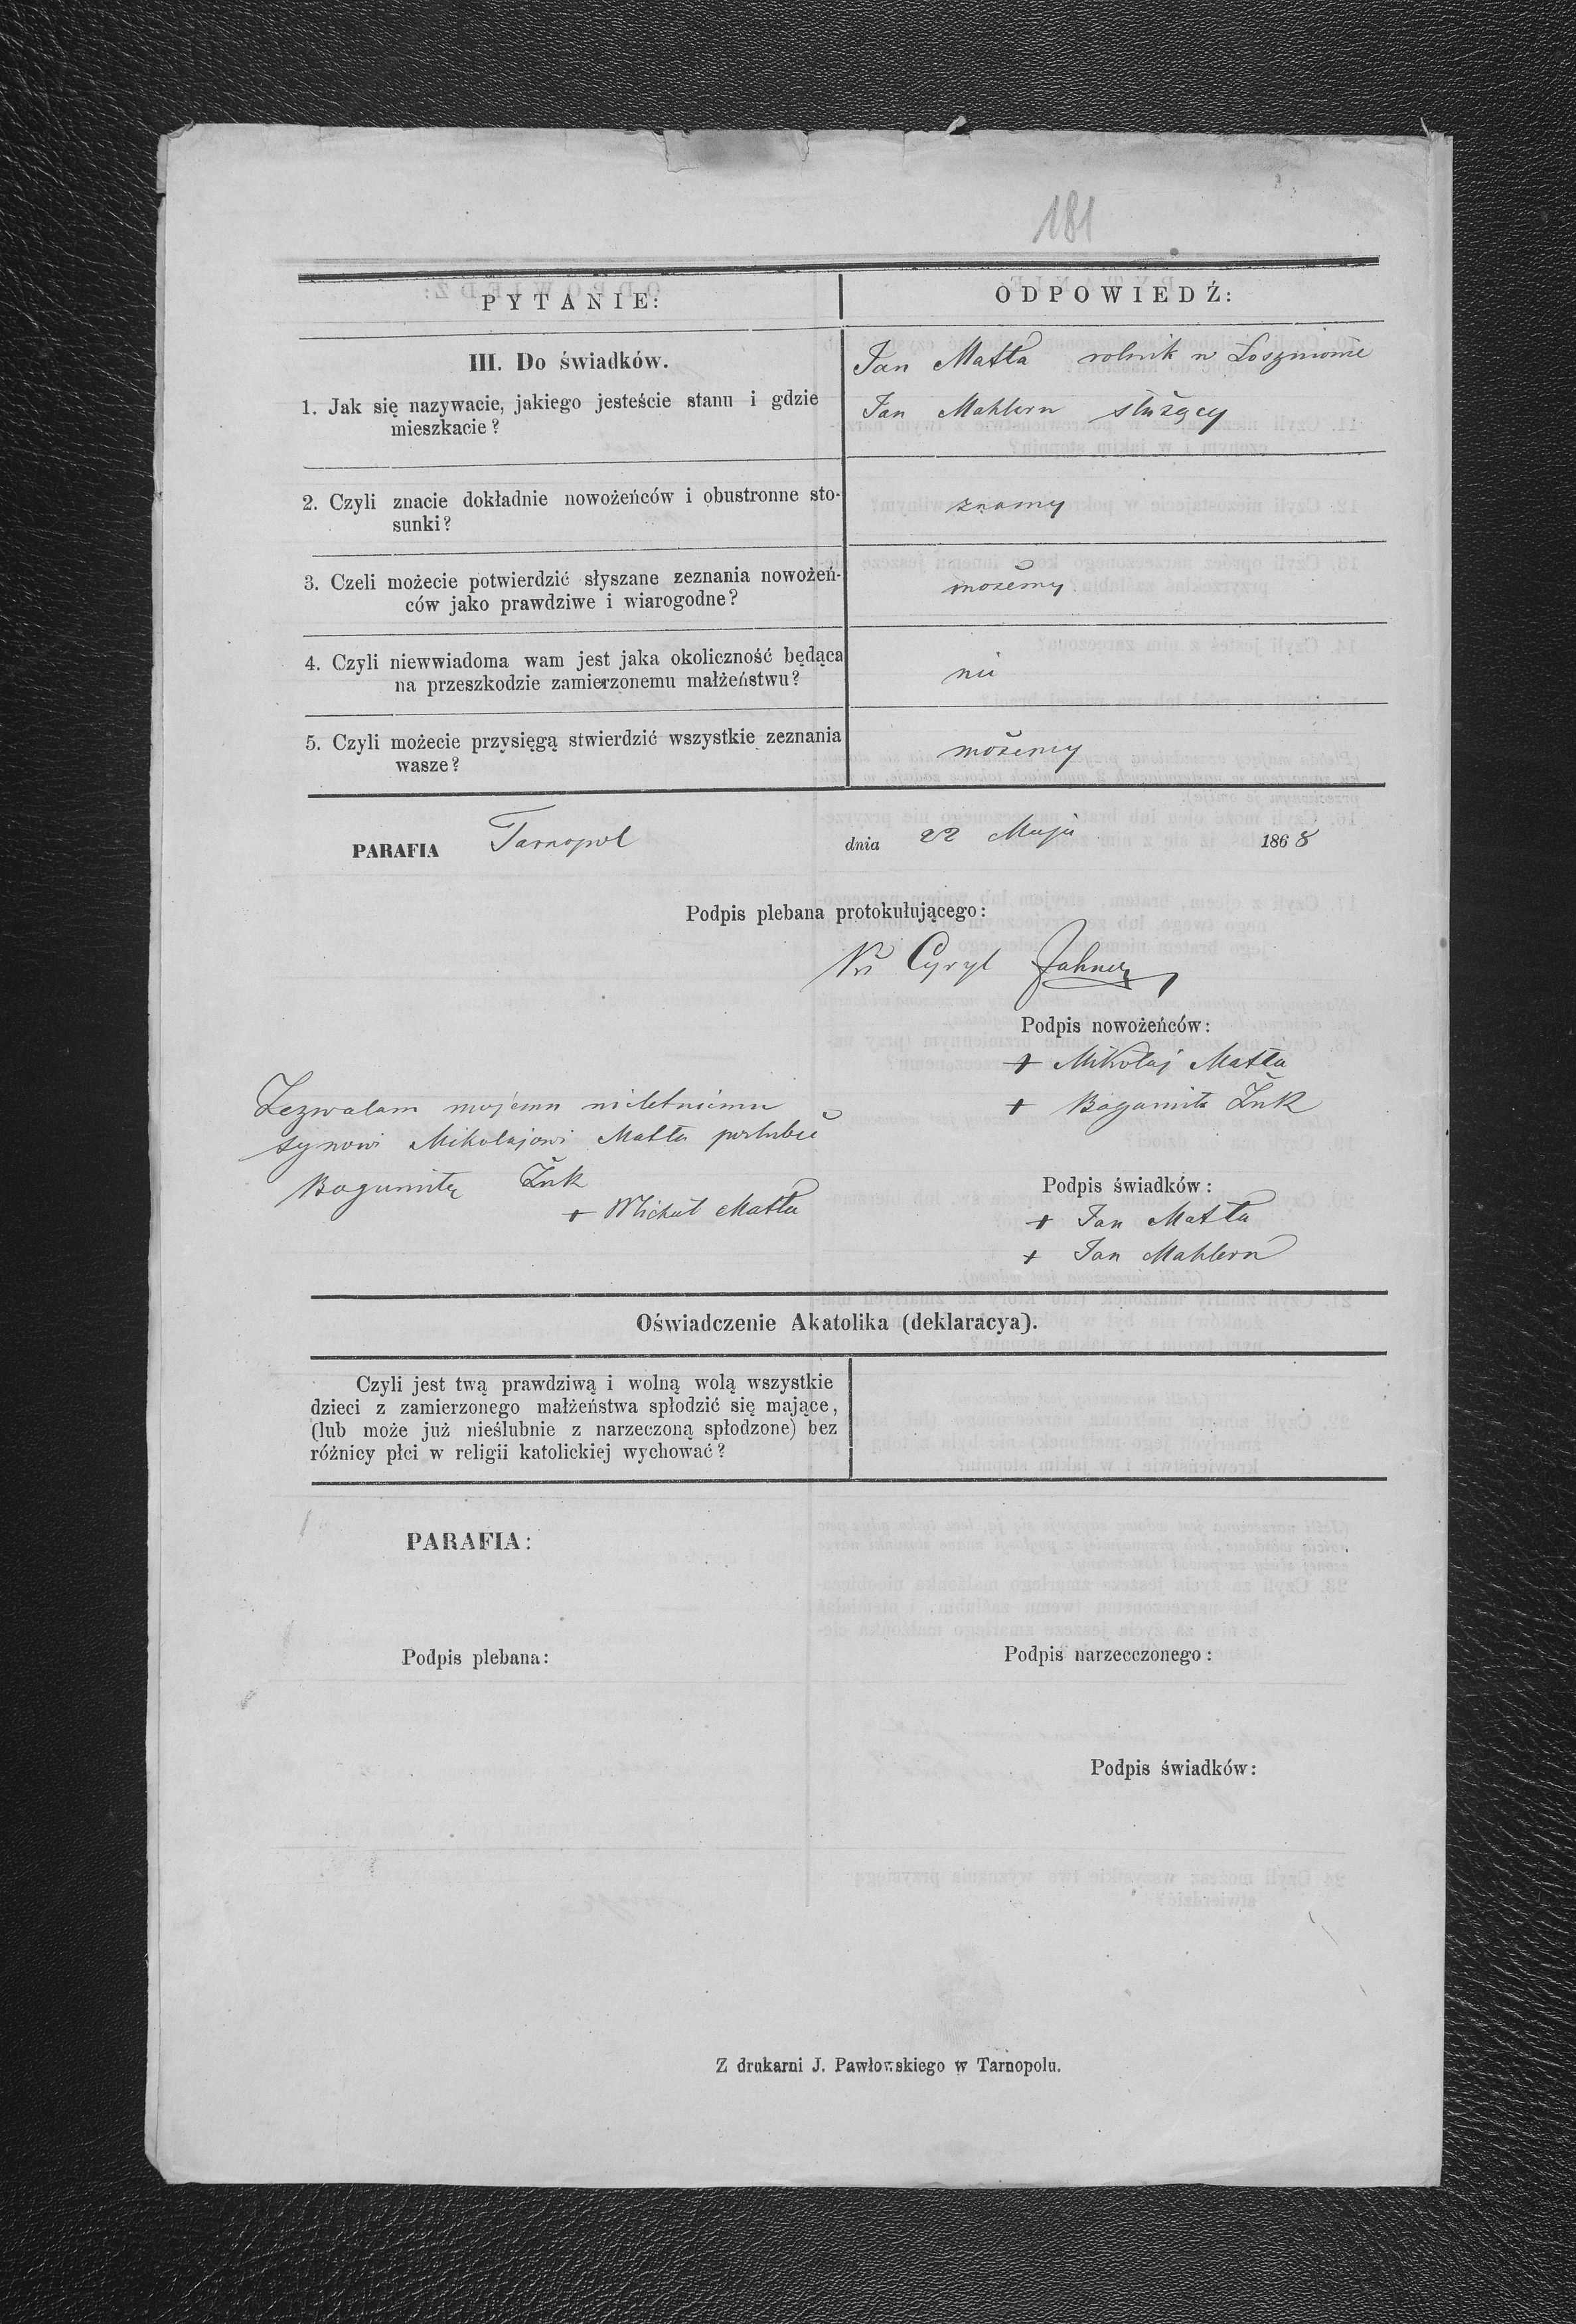 181
PYTANIE:
ODPOWIEDŹ:
III. Do świadków.
1. Jak się nazywacie, jakiego jesteście stanu i gdzie
mieszkacie?
Jan Matła rolnik w Łoszniowie
Jan Mahlern służący
2. Czyli znacie dokładnie nowożeńców i obustronne sto-
sunki?
znamy
3. Czeli możecie potwierdzić słyszane zeznania nowożeń-
ców jako prawdziwe i wiarogodne?
możemy
4. Czyli niewwiadoma wam jest jaka okoliczność będąca
na przeszkodzie zamierzonemu małżeństwu?
nie
5. Czyli możecie przysięgą stwierdzić wszystkie zeznania
wasze?
możemy
PARAFIA Tarnopol dnia 22 Maja 1868
Podpis plebana protokułującego:
Cyryl
Podpis nowożeńców:
+ Mikołaj Matła
+ Bogumiła Żuk
Zezwalam mojemu nieletniemu
synowi Mikołajowi Matła poślubić
Bogumiłę Żuk
+ Michał Matła
Podpis świadków:
+ Jan Matła
+ Jan Mahlern
Oświadczenie Akatolika (deklaracya).
Czyli jest twą prawdziwą i wolną wolą wszystkie
dzieci z zamierzonego małżeństwa spłodzić się mające,
(lub może już nieślubnie z narzeczoną spłodzone) bez
różnicy płci w religii katolickiej wychować?
PARAFIA:
Podpis plebana:
Podpis narzecczonego:
Podpis świadków:
Z drukarni J. Pawłowskiego w Tarnopolu.